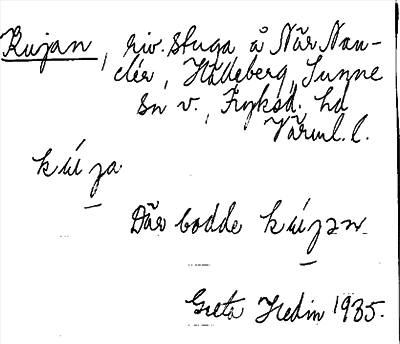 Kujan, riv. stuga å När Nan-
dér, Hådeberg, Sunne
sn v., Fryksd. hd
Värml. l.
kúȷa
Där bodde kúȷan.
Greta Hedin 1935.